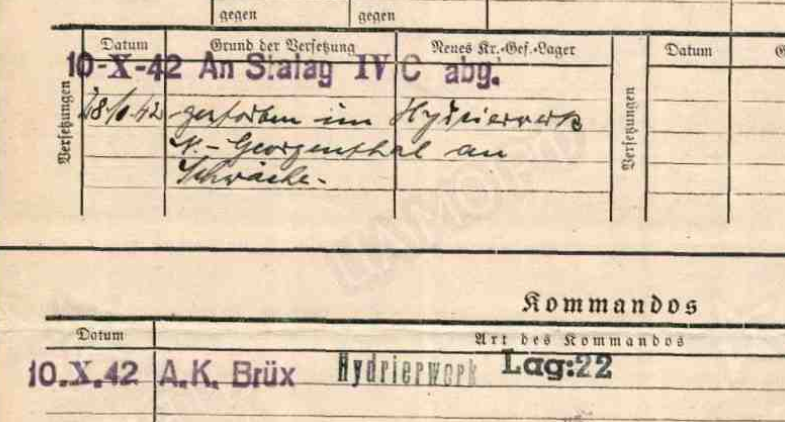 gegen gegen
Datum Grund der Versetzung Neues Kr.-Gef.-Lager Datum
Versetzungen
10-X-42 An Stalag IV C abg.
gestorben im Hydrierwerk
N.-Georgenthal an
Schwäche.
Versetzungen
Kommandos
Datum Art des Kommandos
10.X.42 A.K. Brüx Hydrierwerk Lag:22